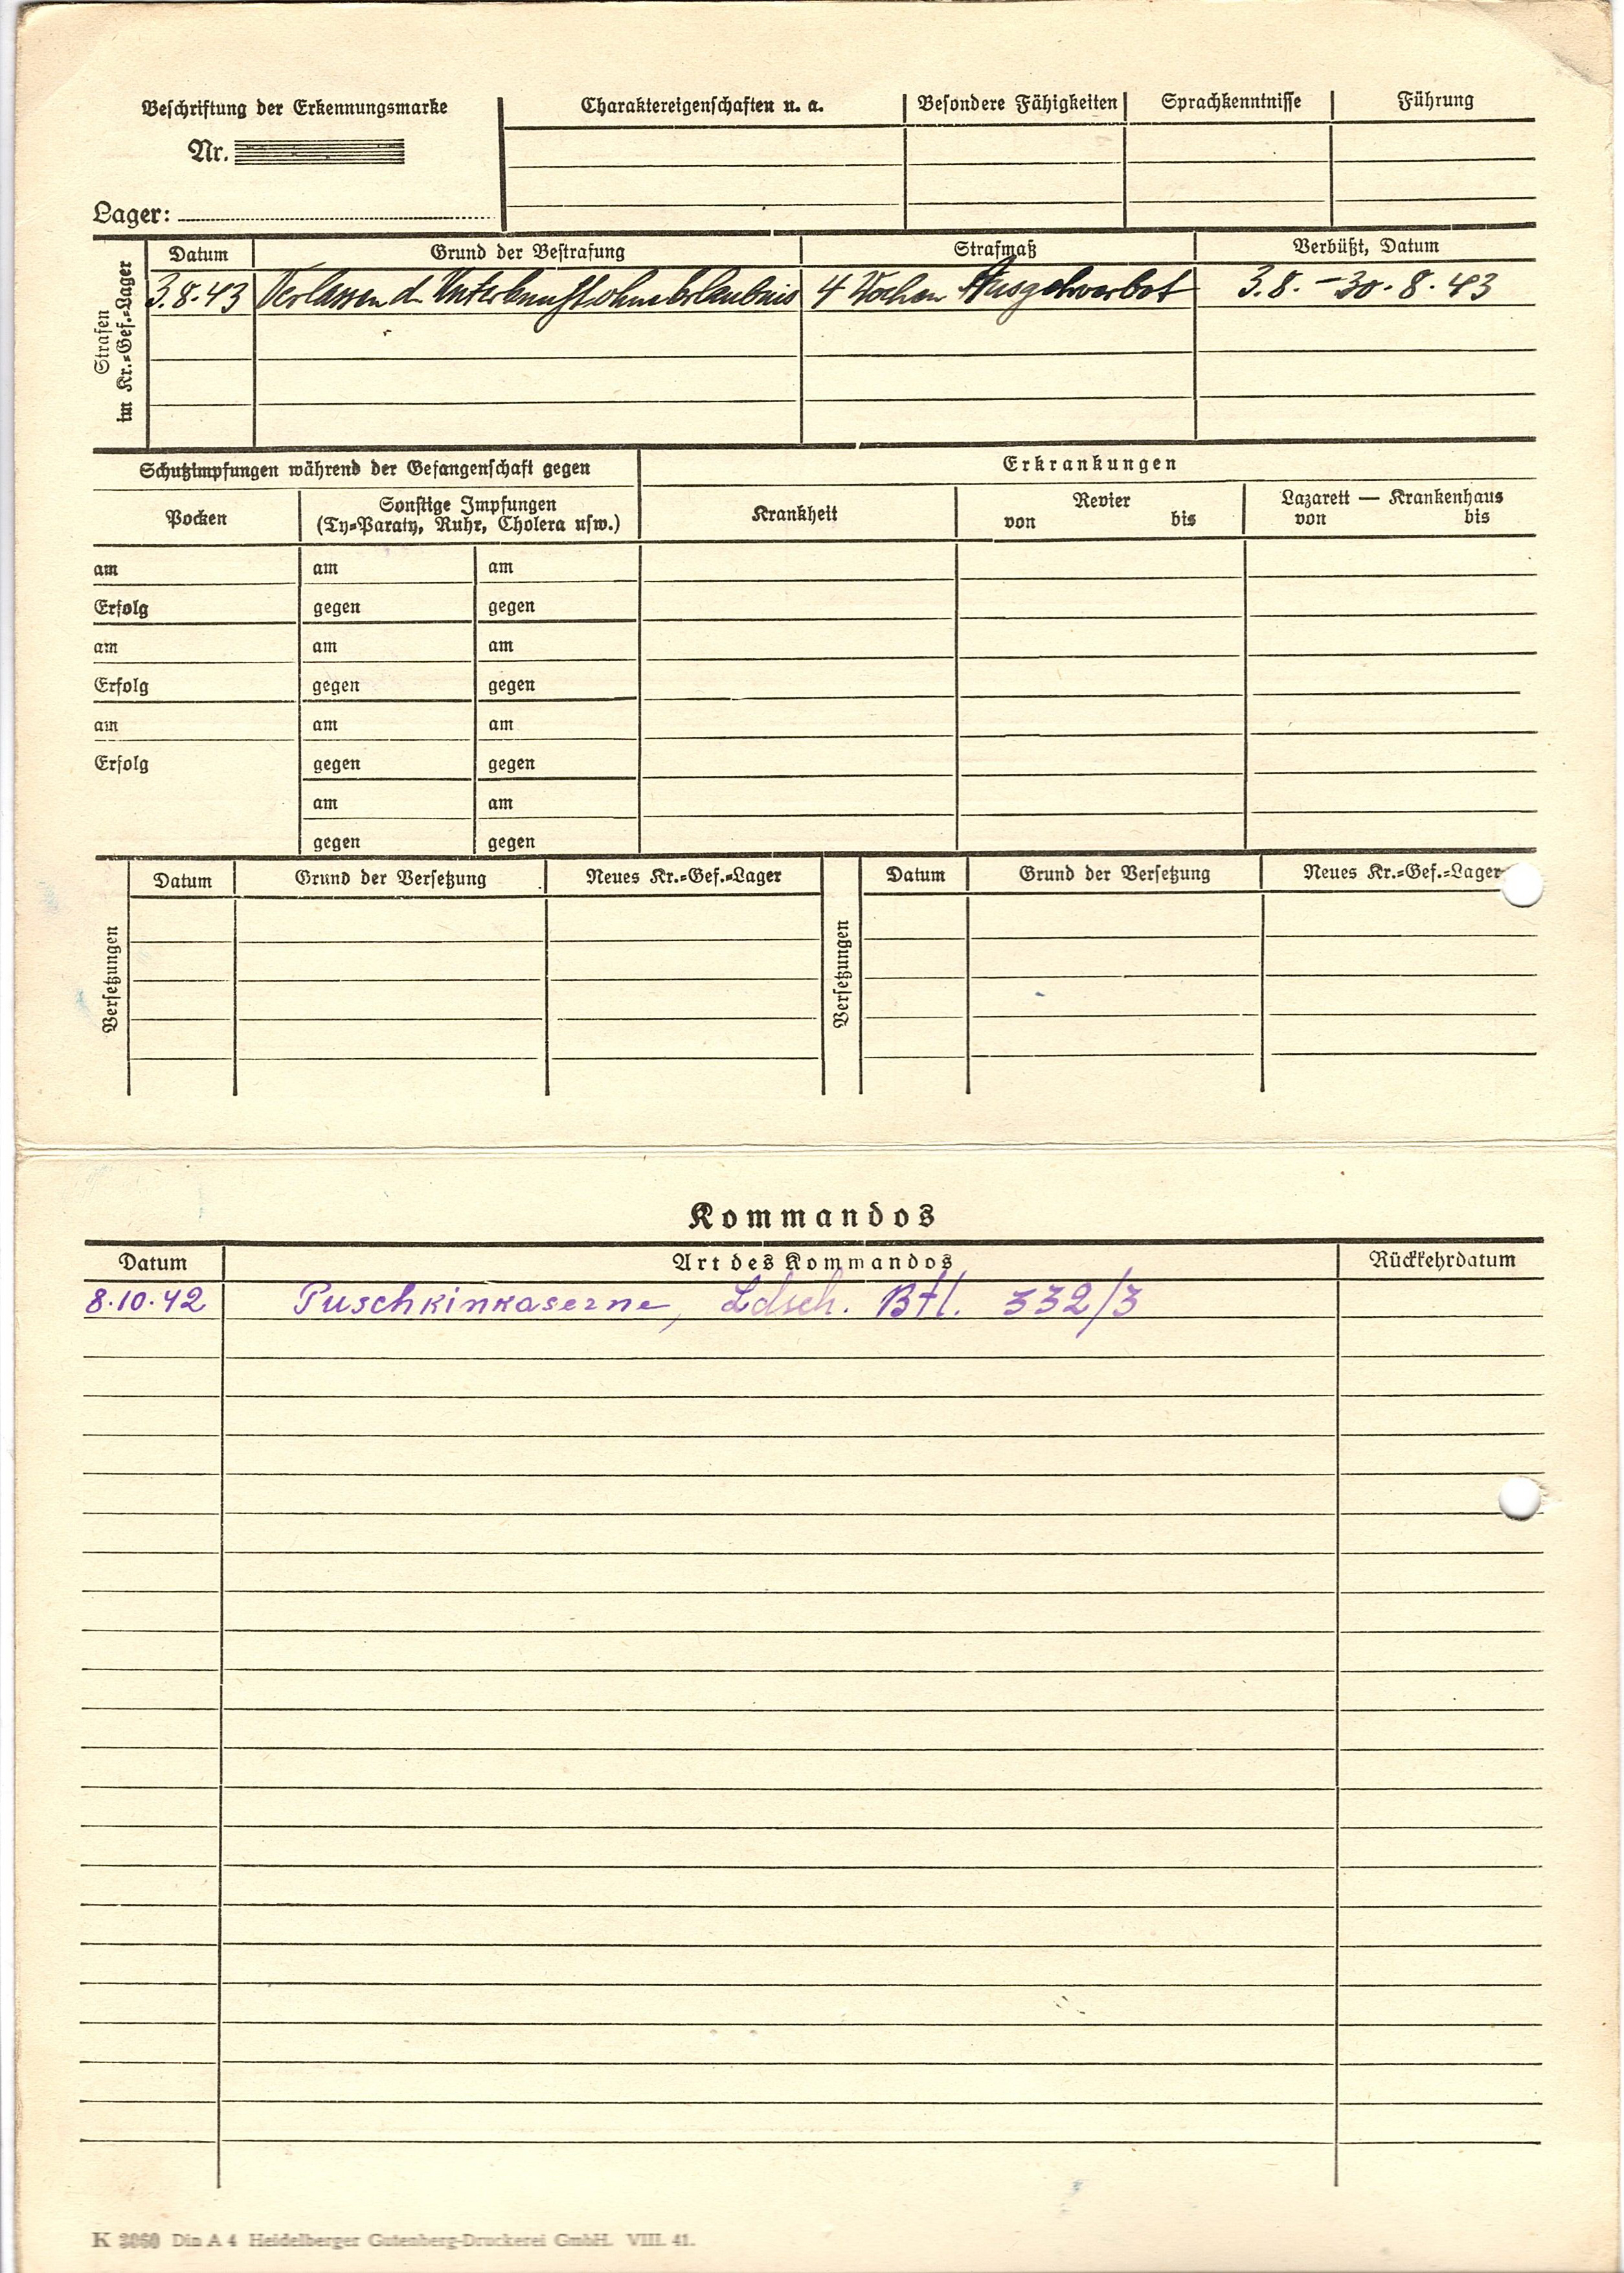 Beschriftung der Erkennungsmarke
Nr.
Lager:
Charaktereigenschaften u. a.
Besondere Fähigkeiten
Sprachkenntnisse
Führung
Strafen
im Kr.=Gef.=Lager
Datum
Grund der Bestrafung
Strafmaß
Verbüßt, Datum
3.8.43 Verlassen d. Unterkunft ohne Erlaubnis 4 Wochen Ausgehverbot 3.8. – 30.8.43
Schutzimpfungen während der Gefangenschaft gegen
Erkrankungen
Pocken
Sonstige Impfungen
(Ty=Paraty, Ruhr, Cholera usw.)
Krankheit
Revier
von bis
Lazarett — Krankenhaus
von bis
am am am
Erfolg gegen gegen
am am am
Erfolg gegen gegen
am am am
Erfolg gegen gegen
am am
gegen gegen
Versetzungen
Datum
Grund der Versetzung
Neues Kr.=Gef.=Lager
Versetzungen
Datum
Grund der Versetzung
Neues Kr.=Gef.=Lager
Kommandos
Datum
Art des Kommandos
Rückkehrdatum
8.10.42 Puschkinkaserne, Ldsch. Btl. 332/3
K 3060 Din A 4 Heidelberger Gutenberg-Druckerei GmbH. VIII. 41.